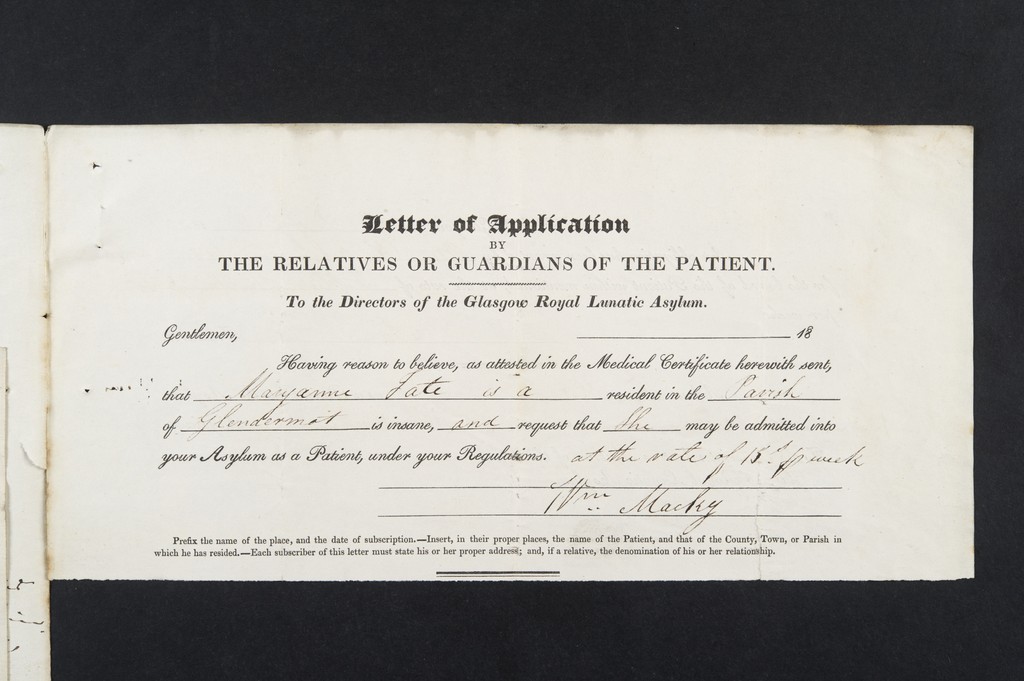 Letter of Application
BY
THE RELATIVES OR GUARDIANS OF THE PATIENT.
To the Directors of the Glasgow Royal Lunatic Asylum.
Gentlemen, 18
Having reason to believe, as attested in the Medical Certificate herewith sent,
that Maryanne Tate is a resident in the Parish
of Glendermot is insane, and request that She may be admitted into
your Asylum as a Patient, under your Regulations. at the rate of 15s. p week
Wm. Macky
Prefix the name of the place, and the date of subscription.—Insert, in their proper places, the name of the Patient, and that of the County, Town, or Parish in
which he has resided.—Each subscriber of this letter must state his or her proper address; and, if a relative, the denomination of his or her relationship.